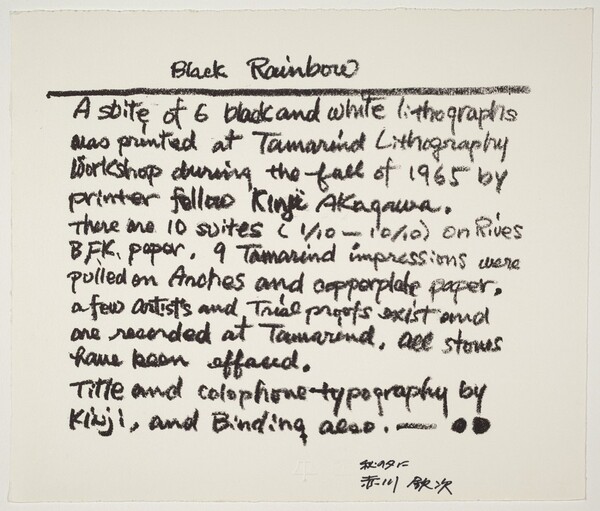 Black Rainbow
A suite of 6 black and white lithographs
was printed at Tamarind Lithography
Workshop during the fall of 1965 by
printer fellow Kinji Akagawa.
There are 10 suites (1/10 — 10/10) on Rives
B.F.K. paper. 9 Tamarind impressions were
pulled on Arches and copperplate paper.
a few Artist's and Trial proofs exist and
are recorded at Tamarind. All stones
have been effaced.
Title and colophone-typography by
Kinji, and Binding also. — ●●
赤川 欽次